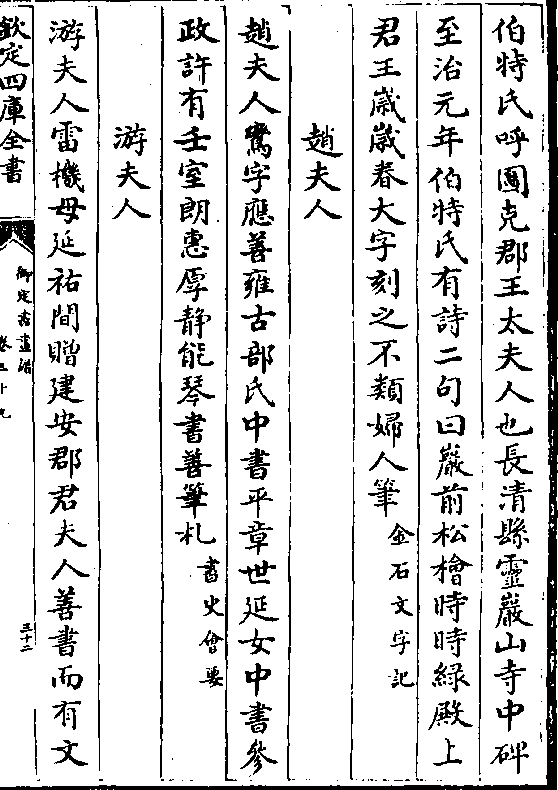 伯特氏呼圖克郡王太夫人也長清縣靈巖山寺中碑
至治元年伯特氏有詩二句曰巖前松檜時時綠殿上
君王歲歲春大字刻之不類婦人筆金石文字記
趙夫人
趙夫人鸞字應善雍古部氏中書平章世延女中書參
政許有壬室朗惠厚静能琴書善筆札書史會要
游夫人
游夫人雷機母延祐間贈建安郡君夫人善書而有文
欽定四庫全書
御定書畫譜
卷三十九
三十二